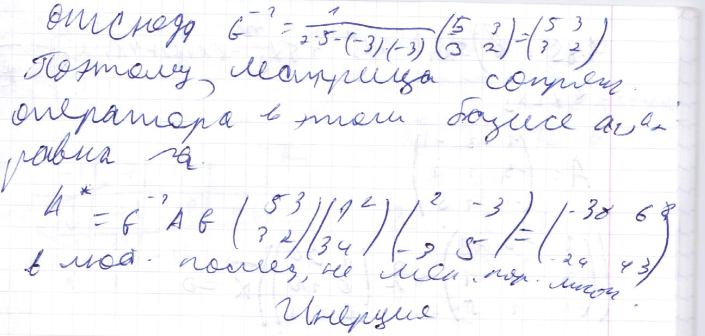 отсюда G⁻¹ = 1/(2·5-(-3)(-3)) (5 3 3 2) = (5 3 3 2)
Поэтому, матрица сопряж.
оператора в этом базисе a₁, a₂
равна
A* = G⁻¹ A G (5 3 3 2)(1 2 3 4)(2 -3 -3 5) = (-38 68 -24 43)
в люб. не
Инерция